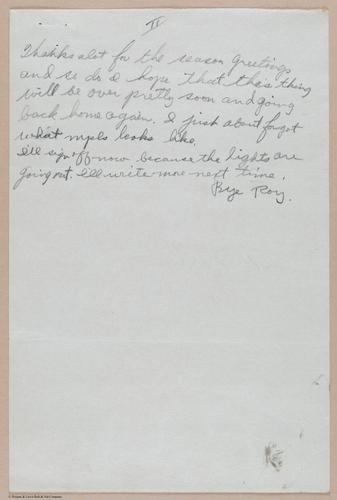 II
Thanks alot for the season greetings
and so do I hope that this thing
will be over pretty soon and going
back home again. I just about forgot
what mpls looks like.
I'll sign off now because the lights are
going out. I'll write more next time.
Bye Roy.